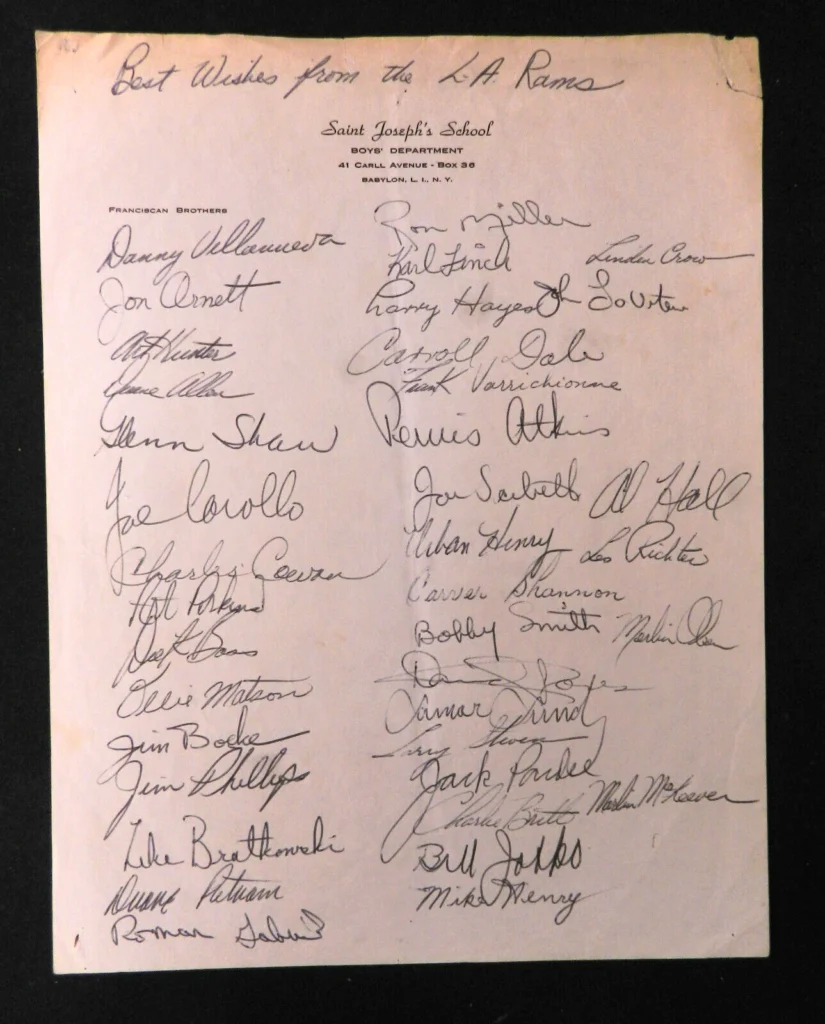 Best Wishes from the L.A. Rams
Saint Joseph's School
BOYS' DEPARTMENT
41 CARLL AVENUE - BOX 36
BABYLON, L. I., N. Y.
FRANCISCAN BROTHERS
Danny Villanueva
Jon Arnett
Art Hunter
Duane Allen
Glenn Shaw
Joe Carollo
Charlie Cowan
Art Perkins
Dick Bass
Ollie Matson
Jim Boeke
Jim Phillips
Zeke Bratkowski
Duane Putnam
Roman Gabriel
Ron Miller
Karl Finch
Linden Crow
Larry Hayes
LoVetere
Carroll Dale
Frank Varrichionne
Pervis Atkins
Joe Scibelli
Al Hall
Urban Henry
Les Richter
Carver Shannon
Bobby Smith
Merlin Olsen
David Jones
Lamar Lundy
Larry Stevens
Jack Pardee
Charlie Britt
Marlin McKeever
Bill Jobko
Mike Henry